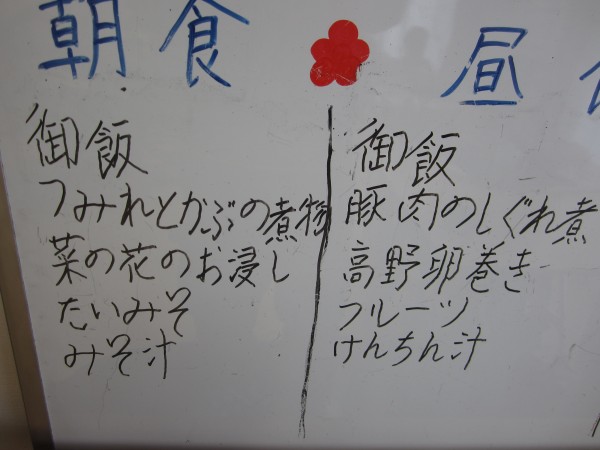 朝食
御飯
つみれとかぶの煮物
菜の花のお浸し
たいみそ
みそ汁
昼
御飯
豚肉のしぐれ煮
高野卵巻き
フルーツ
けんちん汁